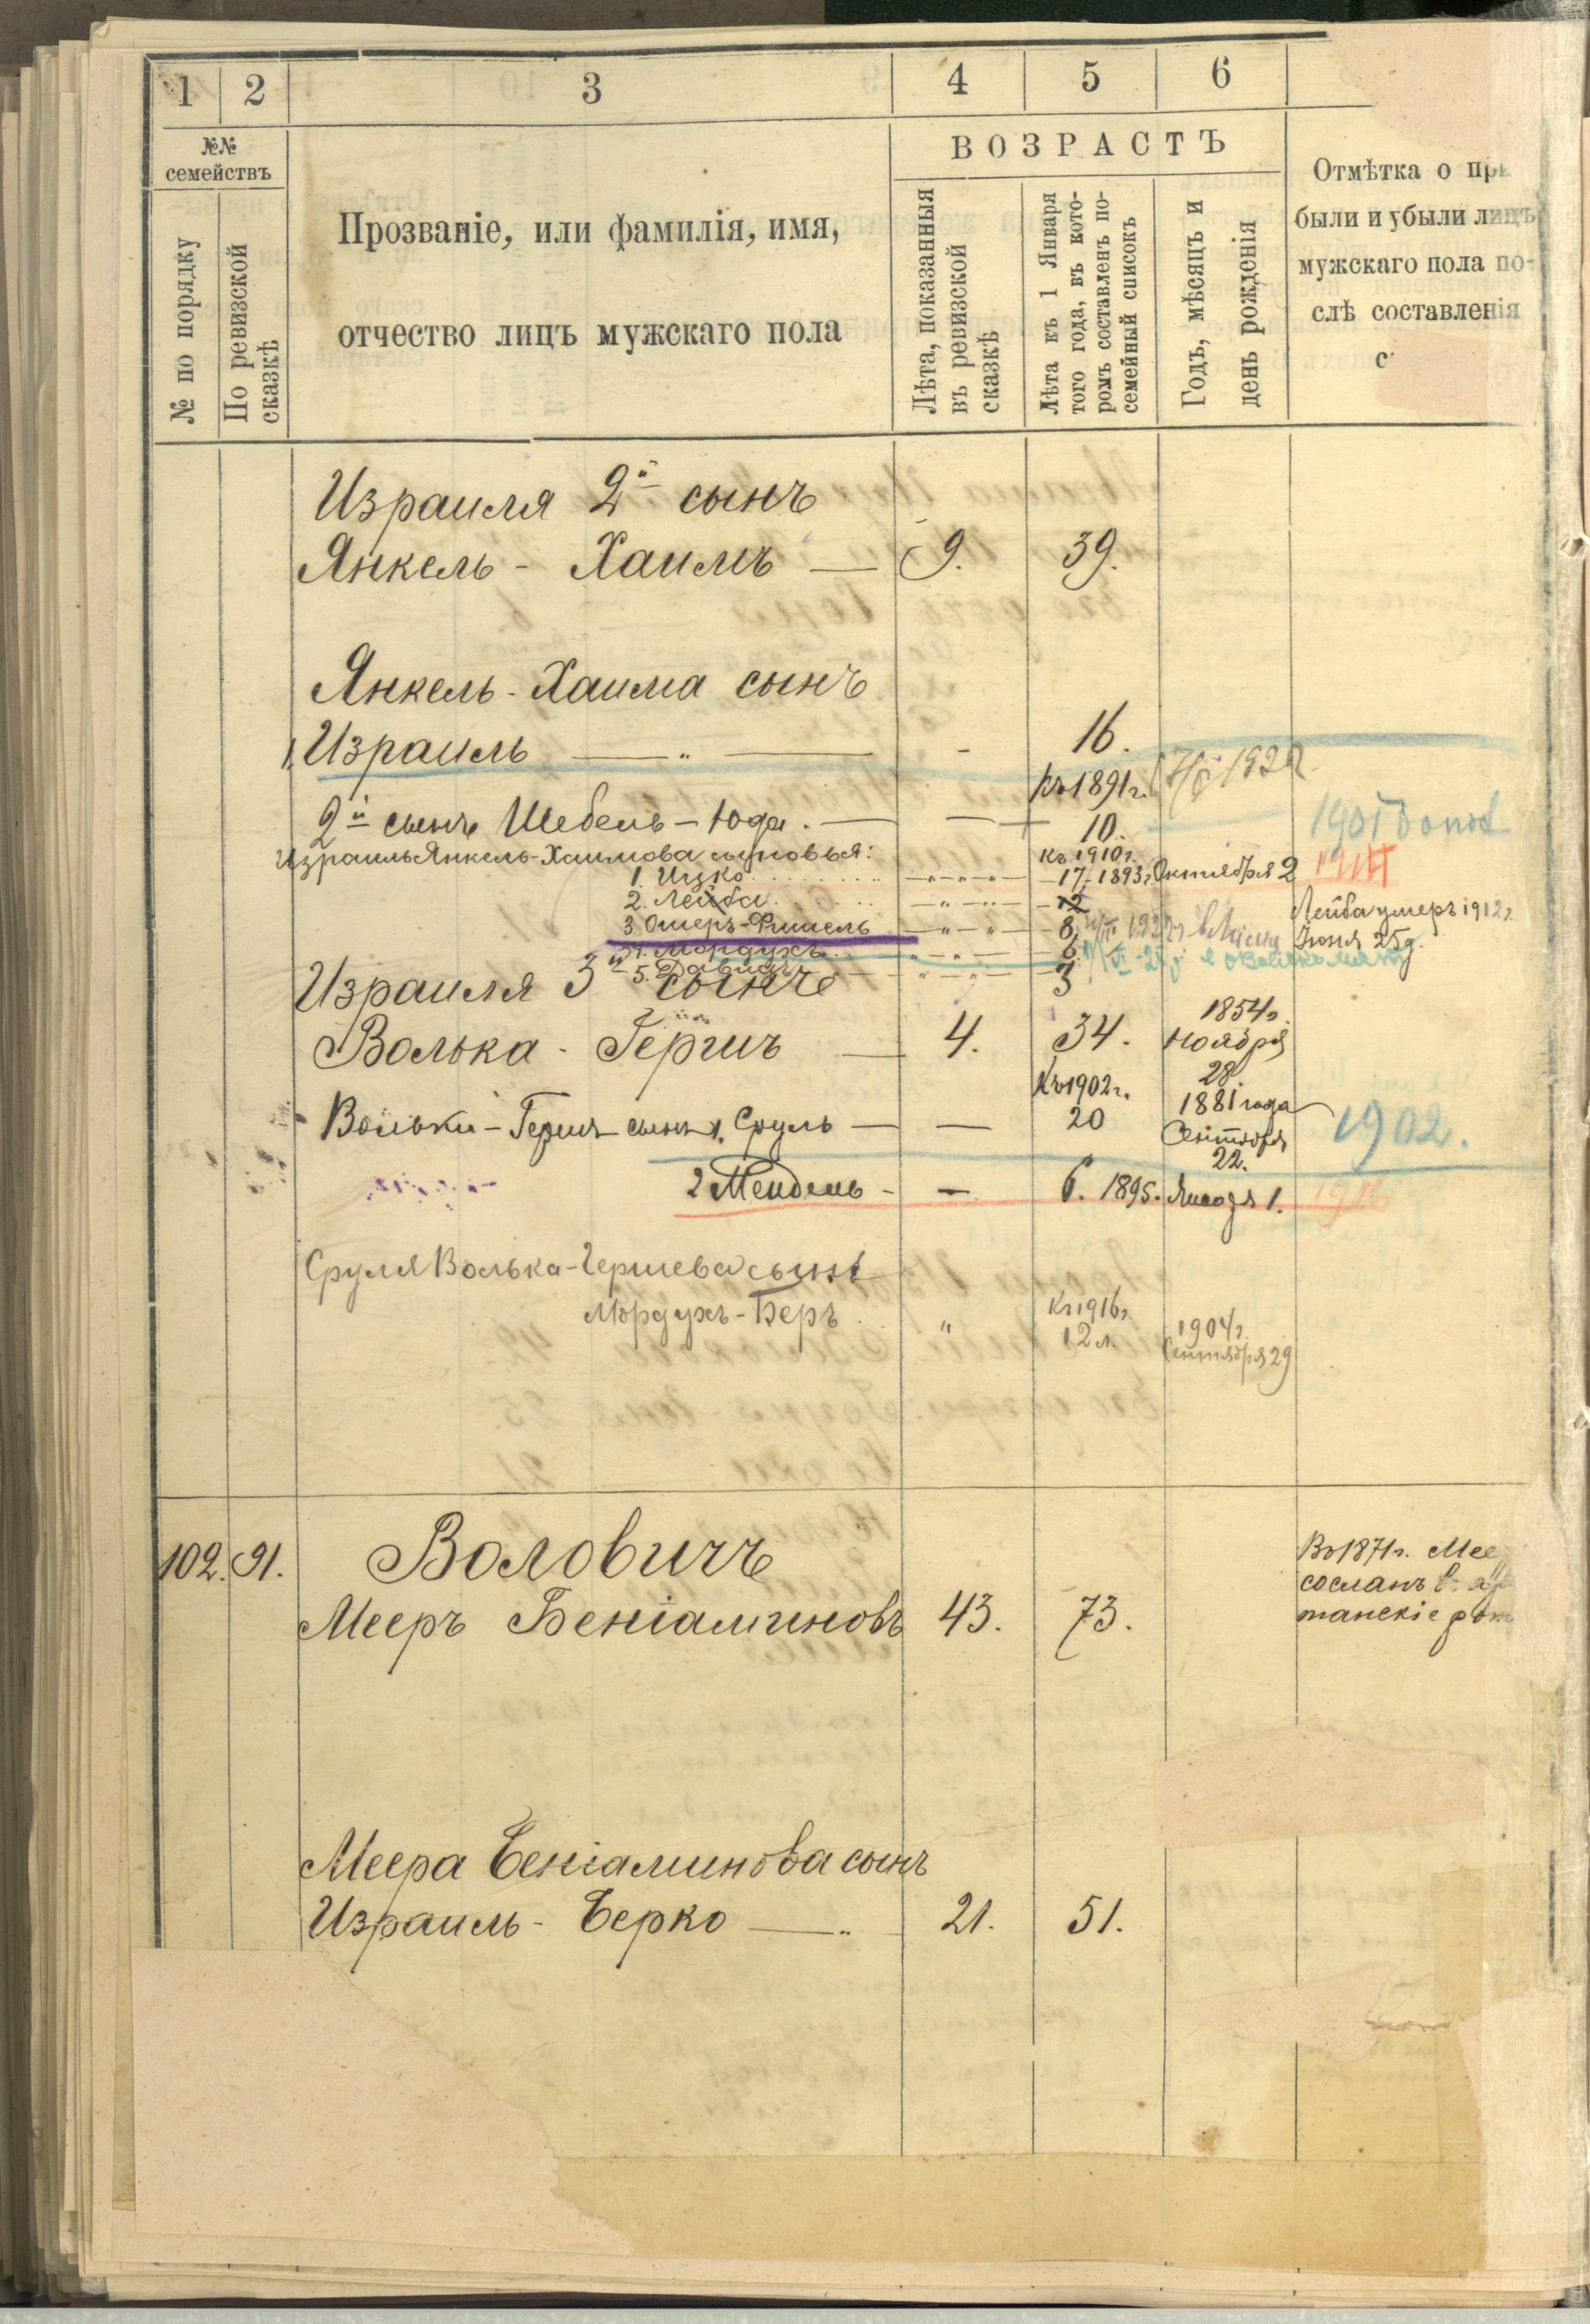 1 2 3 4 5 6
№№ семействъ
№ по порядку
По ревизской сказкѣ
Прозваніе, или фамилія, имя,
отчество лицъ мужскаго пола
ВОЗРАСТЪ
Лѣта, показанныя
въ ревизской
сказкѣ
Лѣта къ 1 Января
того года, въ кото-
ромъ составленъ по-
семейный списокъ
Годъ, мѣсяцъ и
день рожденія
Отмѣтка о при
были и убыли лицъ
мужскаго пола по-
слѣ составленія
с
Израиля 2й сынъ
Янкель - Хаимъ — 9. 39.
Янкель - Хаима сынъ
1. Израиль — " — - 16.
Къ 1891 г.
2й сынъ Шебель - Юда. — — 10. 1901
Израиль Янкель-Хаимова сыновья: Къ 1910 г.
1. Ицко 17 - 1893 г. Октября 2
2. Лейба 12 Лейба умеръ 1912 г.
3. Ошеръ-Фишель 8 Іюня 25 д.
4. Мордухъ 6
5. Давидъ 3
Израиля 3й сынъ
Волька - Гершъ — 4. 34. 1854 г. Ноября 28
Къ 1902 г.
Вольки - Герша сынъ 1. Сруль — — 20 1881 года Сентября 22. 1902.
2 Мендель - — 6. 1895. Января 1. 1916
Сруля Волька-Гершева сынъ
Мордухъ - Беръ " Къ 1916 г. 12 л. 1904 г. Сентября 29
102. 91. Воловичъ
Мееръ Беніаминовъ 43. 73.
Въ 1871 г. Мее
сосланъ въ
танскіе
Меера Беніаминова сынъ
Израиль - Берко — " 21. 51.